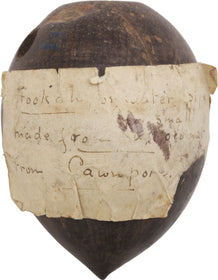 Hookah or water
small
made from a coconut
from Cawnpore.